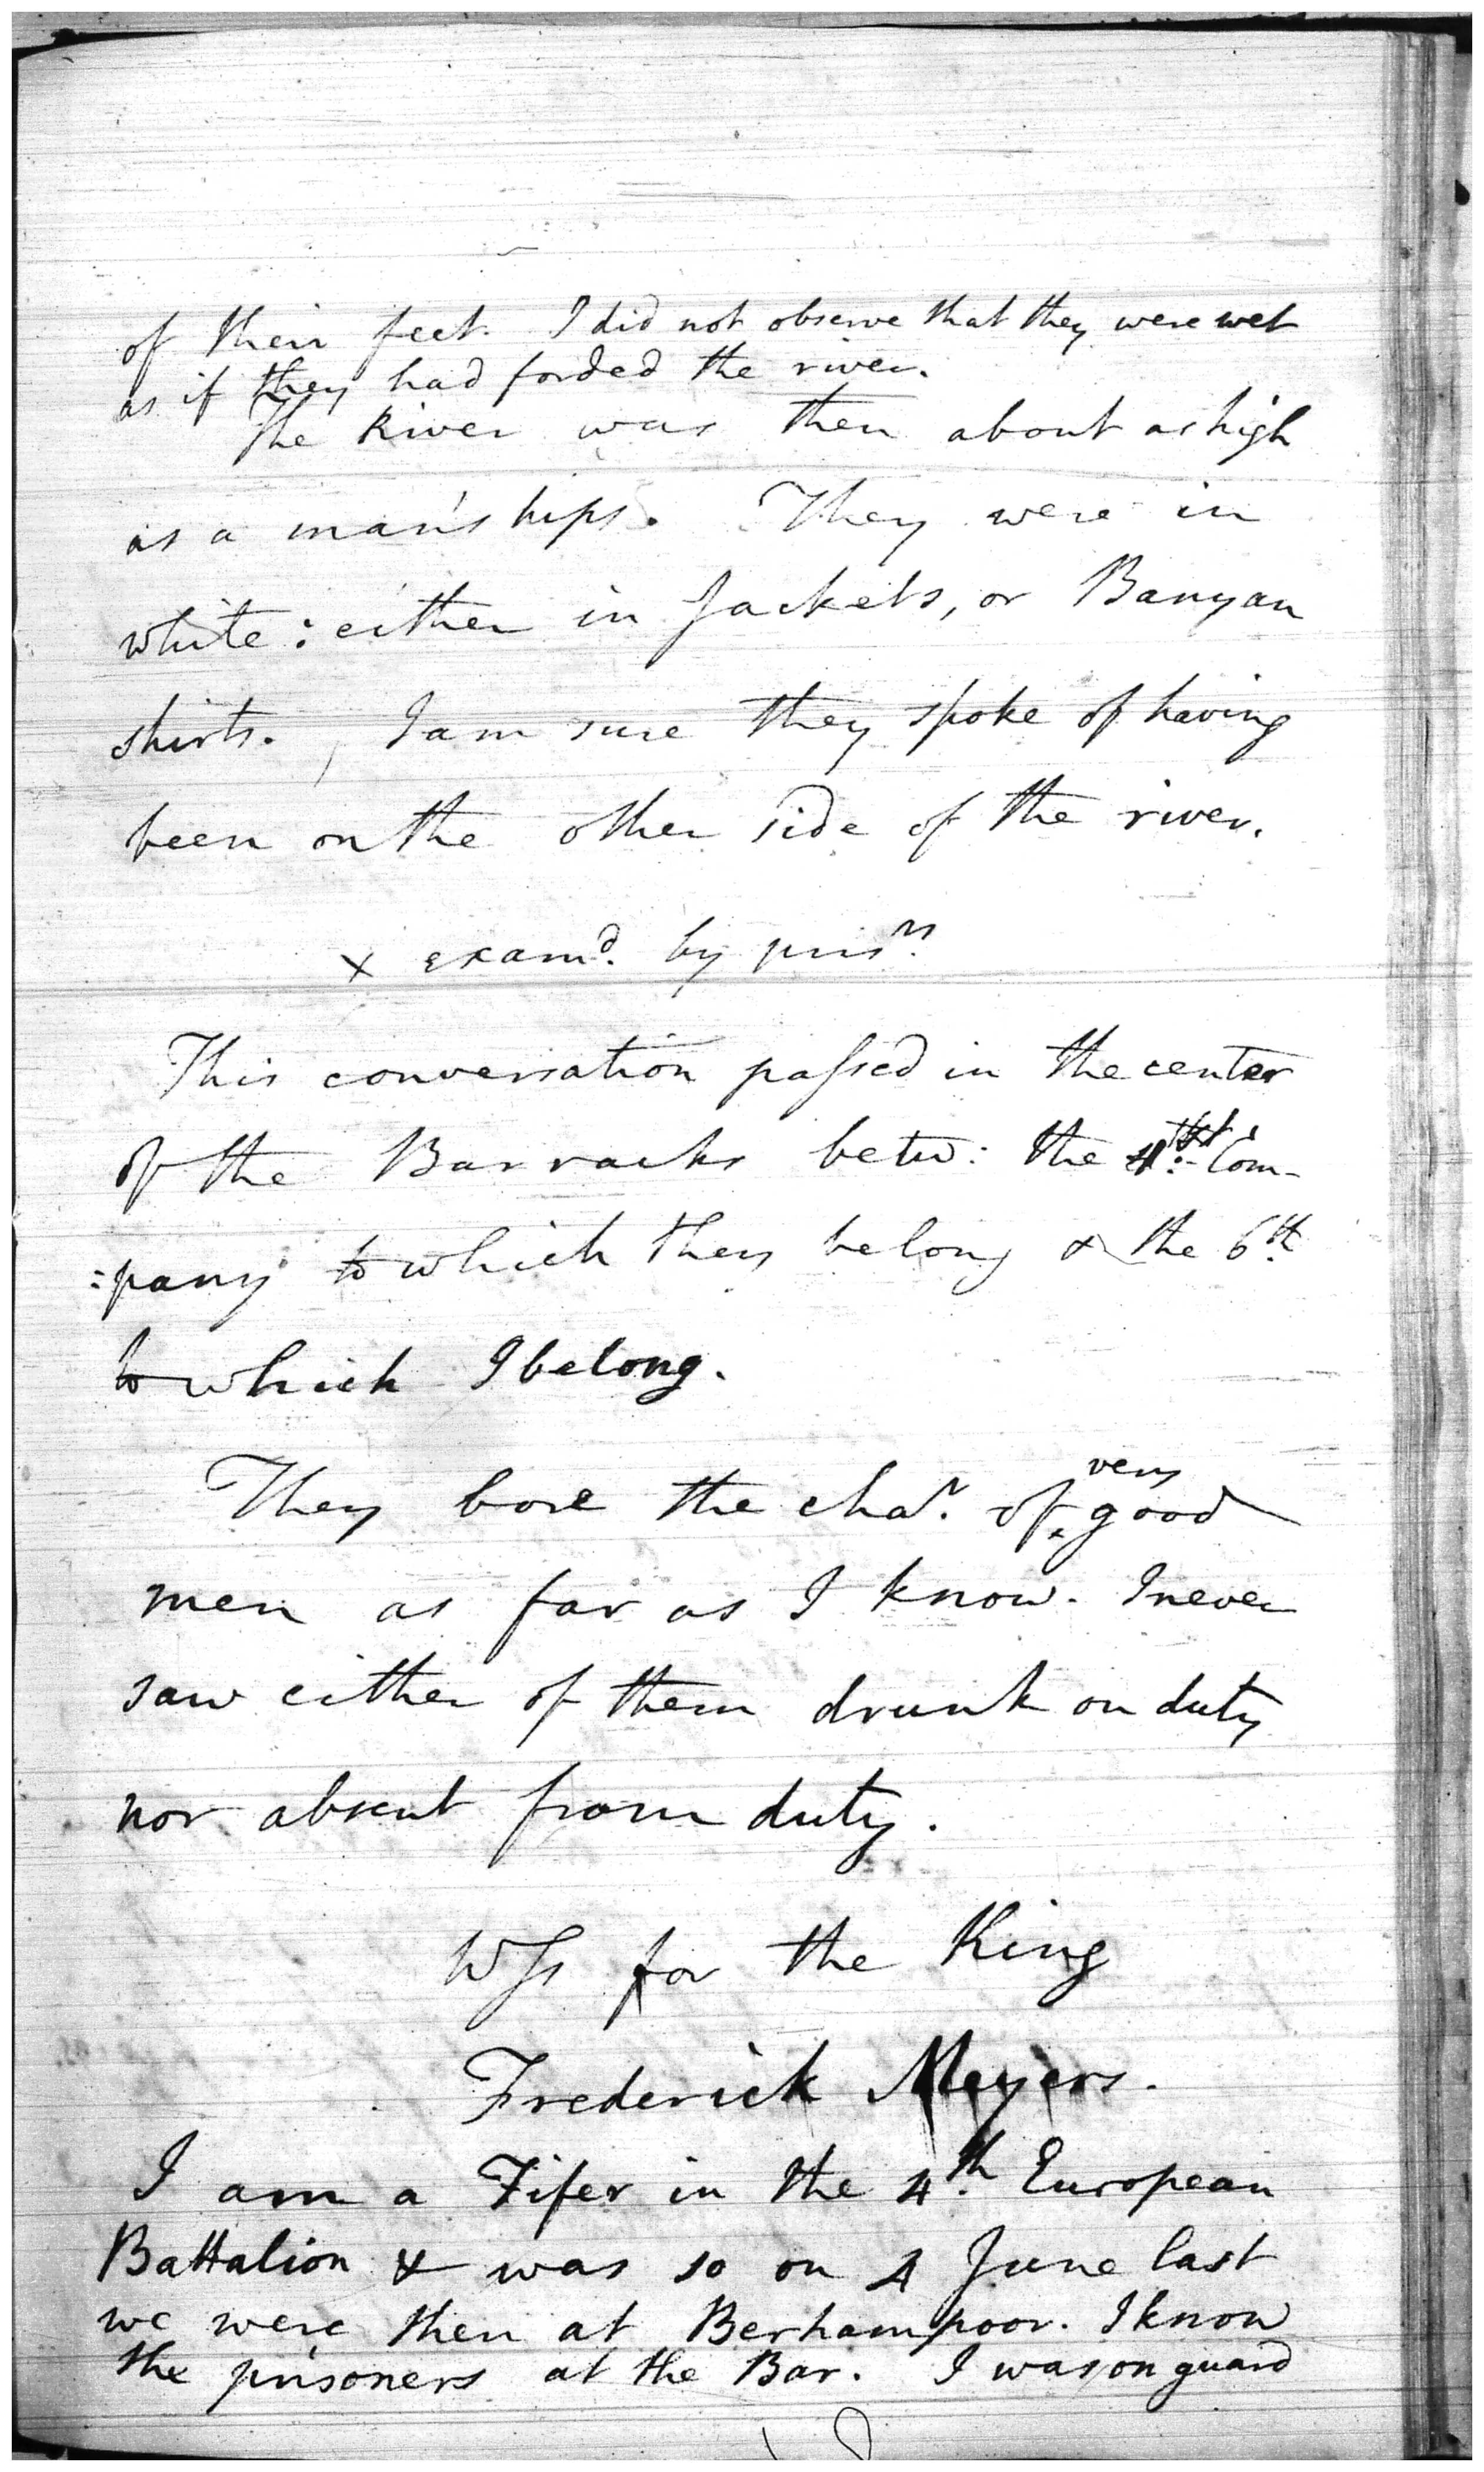 of their feet. I did not observe that they were wet
as if they had forded the river.
The River was then about as high
as a man's hips. They were in
white: either in Jackets, or Banyan
shirts. I am sure they spoke of having
been on the other side of the river.
x examd. by prisrs
This conversation passed in the center
of the Barracks betw: the Com-
:pany to which they belong & the 6th
to which I belong.
They bore the char. of very good
men as far as I know. I never
saw either of them drunk on duty
nor absent from duty.
Wss for the King
Frederick Meyers.
I am a Fifer in the 4th European
Battalion & was so on 4 June last
we were then at Berhampoor. I know
the prisoners at the Bar. I was on guard